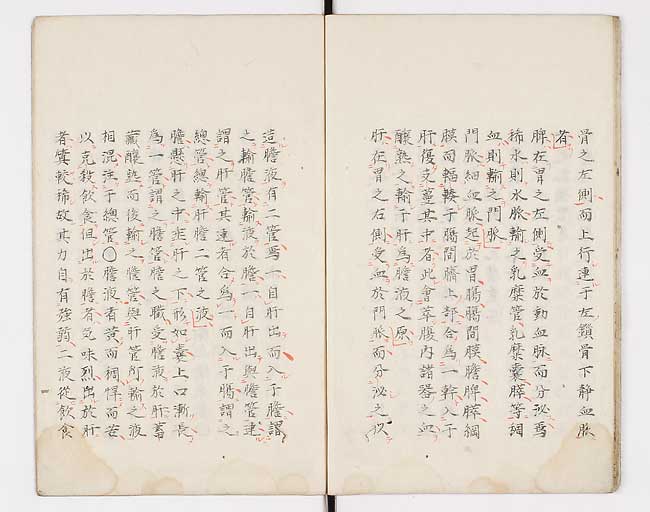 骨之左側而上行連于左鎖骨下靜血脉
者
脾在胃之左側受血於動血脉而分泌焉
稀水則水脈輸之乳糜管乳糜囊膵等稠
血則輸之門脈
門脈細血脈起於胃腸腸間膜膽脾膵網
膜而輻輳于腸間臍上部合為一幹入于
肝復支蔓其中者此會萃腹內諸器之血
釀熟之輸于肝為膽液之原
肝在胃之右側受血於門脈而分泌之以
這膽液有二管焉一自肝出而入于膽謂
之輸膽管輸液於膽一自肝出與膽管連
謂之肝管其連者合為一而入于腸謂之
總管總輸肝膽二管之液
膽懸肝之中在肝之下形如囊上口漸長
為一管謂之膽管膽之職受膽液於肝蓄
藏釀熟而後輸之膽管與肝管所輸之液
相混注于總管〇膽液者黃而稠悍而苦
以克殺飲食但出於膽者氣味烈出於肝
者實較稀故其力自有強弱二液從飲食